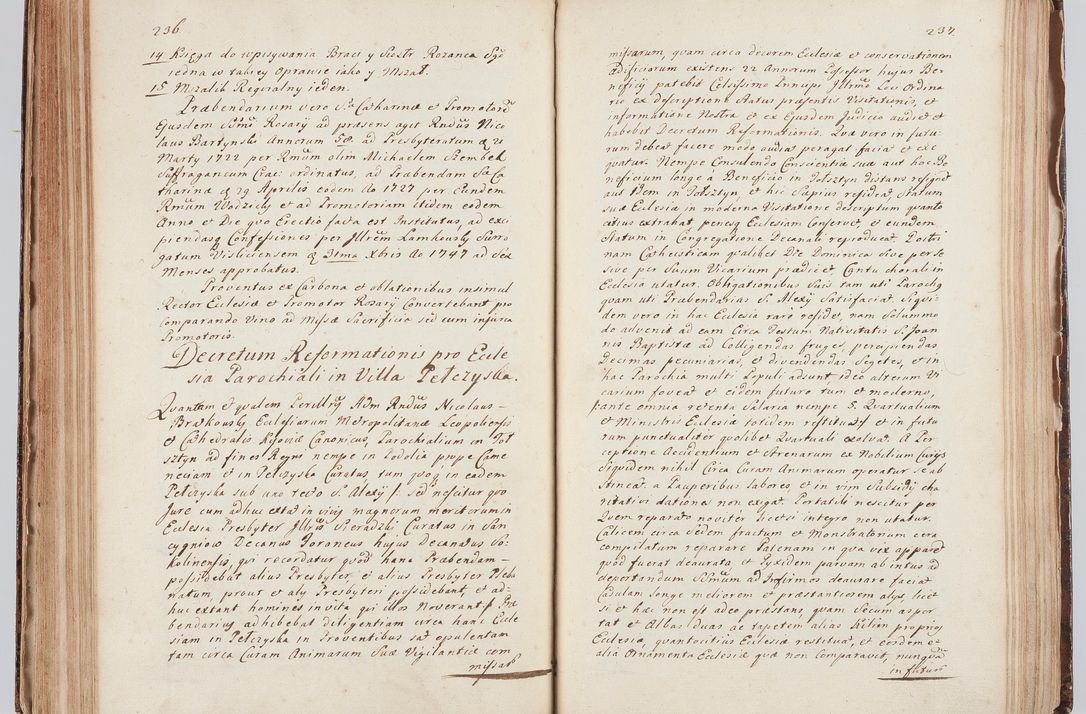 236
14 Księga do wpisywania Braci y Siostr Rozanca Sgo
iedna w takiey Oprawie iako y Mszał.
15 Mszalik Requialny ieden.
Præbendarium vero Stæ Catharinæ et Promotorem
Ejusdem SSmi Rosarij ad præsens agit Rndus Nico
laus Bartynski Annorum 58. ad Presbyteratum a 21
Marty 1722 per Rmum olim Michaelem Szembek
Suffraganeum Crac: ordinatus, ad Præbendam S. Ca
tharinæ a 29 Aprilis eodem Ao 1727 per Eundem
Rmum Wodzicky et ad Promotoriam itidem eodem
Anno et Die quo Erectio facta est Institutus, ad exci
piendasq Confessiones per Jllrem Lamkousky Surro
gatum Visliciensem a 31ma Xbris Ao 1747 ad Sex
Menses approbatus.
Proventus ex Carbona et oblationibus insimul
Rector Ecclesiæ et Promotor Rosarij Convertebant pro
Comparando Vino ad Missæ Sacrificia sed cum injuria
Promotoris.
Decretum Reformationis pro Eccle
sia Parochiali in Villa Pełczyska.
Quantum et qualem Perillris Adm Rndus Nicolaus
Bratkousky Ecclesiarum Metropolitanæ Leopoliensis
et Cathedralis Kijoviæ Canonicus, Parochialium in Tot
sztyn ad fines Regni nempe in Podolia prope Came
neciam et in Pelczyska Curatus, tum quoq in eadem
Pełczyska sub uno tecto S. Alexÿ /: sed nescitur quo
Jure cum adhuc extat in vivis magnorum meritorum in
Ecclesia Presbyter Jllris Sieradzki Curatus in San
cygniow Decanus Foraneus hujus Decanatus So
kolinensis, qui recordatur quod hanc Præbendam
possidebat alius Presbyter, et alius Presbyter Pleba
natum, prout et alÿ Presbyteri possidebant, et ad
huc extant homines in vita qui illos Noverant :/ Præ
bendarius adhibebat diligentiam circa hanc Eccle
siam in Pełczyska in Proventibus sat opulentam
tam circa Curam Animarum Suæ Vigilantiæ com
missar
237
missarum, quam circa decorem Ecclesiæ et conservationem
ædificiorum existens 22 Annorum Possessor hujus Be
neficij patebit Celsissimo Principi Jllrmo Loci Ordina
rio ex descriptione Status præsentis Visitationis, et
informatione Nostra et ex Ejusdem Judicio audiet et
habebit Decretum Reformationis. Quæ vero in futu
rum debeat facere modo audiat peragat faciat et exe
quatur. Nempe Consulendo Conscientiæ suæ aut hoc Be
neficium longe à Beneficio in Totsztyn distans resignet
aut idem in Totsztyn, et hic Sæpius resideat, Statum
suæ Ecclesiæ in moderno Visitatione descriptum quanto
citius extrahat, penesq Ecclesiam Conservet, et eundem
Statum in Congregatione Decanali reproducat. Doctri
nam Catheisticam qualibet Die Dominica sive per se
sive per Suum Vicarium prædicet, Cantu chorali in
Ecclesia utatur. Obligationibus Suis tam uti Parochq
quam uti Præbendarius S. Alexÿ Satisfaciat. Siqui
dem vero in hac Ecclesia raro residet, nam Solummo
do advenit ad eam Circa Festum Nativitatis S. Joan
nis Baptistæ ad Colligendas fruges, percipiendas
Decimas pecuniarias, et dividendas Segetes, et in
hac Parochia multi Populi adsunt, ideo alterum Vi
carium foveat et eidem futuro tum et moderno,
ante omnia retenta Salaria nempe 5. Quartualium
et Ministris Ecclesiæ totidem restituat et in futu
rum punctualiter quolibet Quartuali exolvat. A Per
ceptione Accidentium et Strenarum ex Nobilium Curijs
Siquidem nihil Circa Curam Animarum operatur se ab
stineat. a Pauperibus labores, et in vim Subsidÿ cha
ritativi dationes non exigat. Portatili nescitur per
Quem reparato noviter licet si integro non utatur.
Calicem circa Pedem fractum et Monstratorium cera
compilatum reparare Patenam in qua vix apparet
quod fuerat deaurata, et Pyxidem parvam ab intus ad
deportandum SSmum ad Infirmos deaurare faciat
Casulam longe meliorem et præstantiorem alijs, licet
si et hac non est adeo præstans, quam Secum aspor
tat et Albas duas ac tapetem alias Kilim proprios
Ecclesiæ, quantocitius Ecclesiæ restituat, et eosdem et
alia Ornamenta Ecclesiæ quæ non Comparavit, nunquam
in futuru